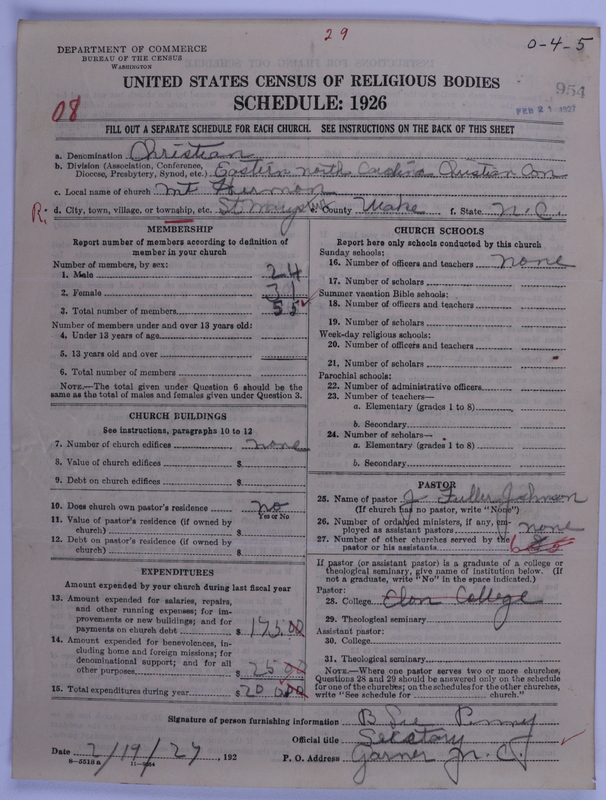 29
0-4-5
DEPARTMENT OF COMMERCE
BUREAU OF THE CENSUS
WASHINGTON
UNITED STATES CENSUS OF RELIGIOUS BODIES
SCHEDULE: 1926
954
FEB 21 1927
08
FILL OUT A SEPARATE SCHEDULE FOR EACH CHURCH. SEE INSTRUCTIONS ON THE BACK OF THIS SHEET
a. Denomination Christian
b. Division (Association, Conference, Diocese, Presbytery, Synod, etc.) Eastern North Carolina Christian Con
c. Local name of church Mt Hermon
R; d. City, town, village, or township, etc. St Marys e. County Wake f. State N.C.
MEMBERSHIP
Report number of members according to definition of
member in your church
Number of members, by sex:
1. Male 24
2. Female 31
3. Total number of members 55
Number of members under and over 13 years old:
4. Under 13 years of age
5. 13 years old and over
6. Total number of members
NOTE.—The total given under Question 6 should be the
same as the total of males and females given under Question 3.
CHURCH BUILDINGS
See instructions, paragraphs 10 to 12
7. Number of church edifices none
8. Value of church edifices $
9. Debt on church edifices $
10. Does church own pastor's residence no
Yes or No
11. Value of pastor's residence (if owned by
church) $
12. Debt on pastor's residence (if owned by
church) $
EXPENDITURES
Amount expended by your church during last fiscal year
13. Amount expended for salaries, repairs,
and other running expenses; for im-
provements or new buildings; and for
payments on church debt $ 175.00
14. Amount expended for benevolences, in-
cluding home and foreign missions; for
denominational support; and for all
other purposes $ 25 00
15. Total expenditures during year $ 20 0.00
CHURCH SCHOOLS
Report here only schools conducted by this church
Sunday schools:
16. Number of officers and teachers none
17. Number of scholars
Summer vacation Bible schools:
18. Number of officers and teachers
19. Number of scholars
Week-day religious schools:
20. Number of officers and teachers
21. Number of scholars
Parochial schools:
22. Number of administrative officers
23. Number of teachers—
a. Elementary (grades 1 to 8)
b. Secondary
24. Number of scholars—
a. Elementary (grades 1 to 8)
b. Secondary
PASTOR
25. Name of pastor J Fuller Johnson
(If church has no pastor, write "None")
26. Number of ordained ministers, if any, em-
ployed as assistant pastors none
27. Number of other churches served by the
pastor or his assistants 6
If pastor (or assistant pastor) is a graduate of a college or
theological seminary, give name of institution below. (If
not a graduate, write "No" in the space indicated.)
Pastor:
28. College Elon College
29. Theological seminary
Assistant pastor:
30. College
31. Theological seminary
NOTE.—Where one pastor serves two or more churches,
Questions 28 and 29 should be answered only on the schedule
for one of the churches; on the schedules for the other churches,
write "See schedule for church."
Signature of person furnishing information B Lee Penny
Official title Secretory
Date 2/19/27, 192 P. O. Address Garner N.C.
8-5518a 11-9024